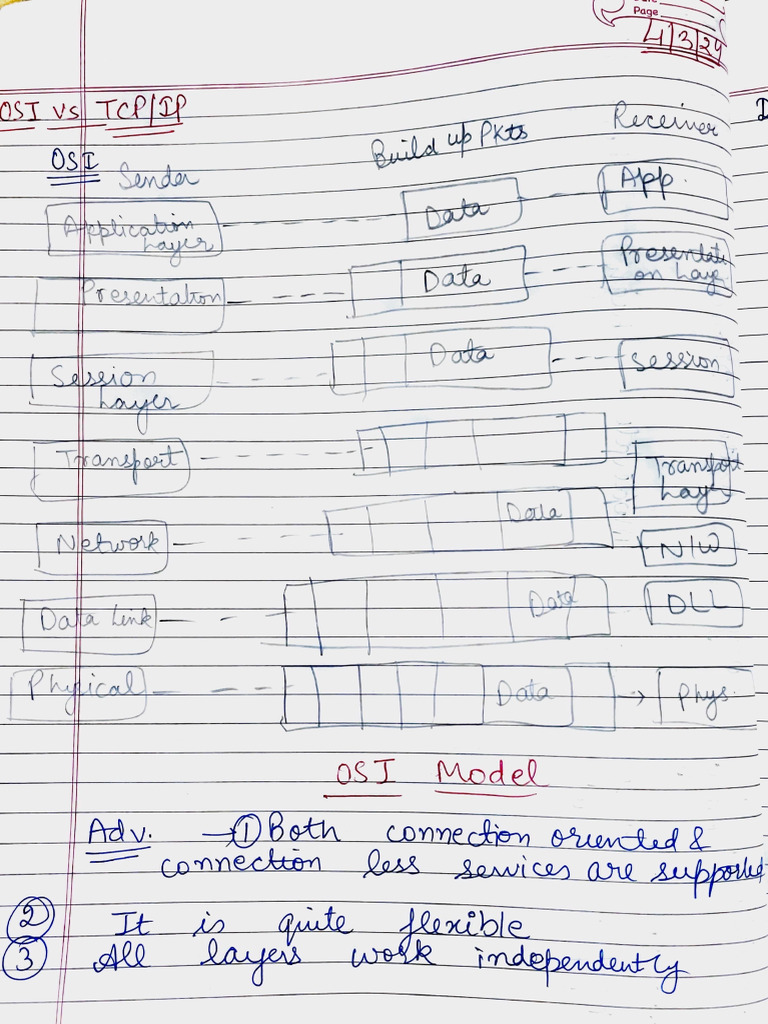 Page
4/3/24
OSI vs TCP/IP
OSI Sender Build up Pkts Receiver
Application Layer Data App.
Presentation Data Presentation Laye
Session Layer Data Session
Transport Transport Laye
Network Data N/W
Data Link Data DLL
Physical Data Phys.
OSI Model
Adv. → ① Both connection oriented &
connection less services are supported
② It is quite flexible
③ All layers work independently